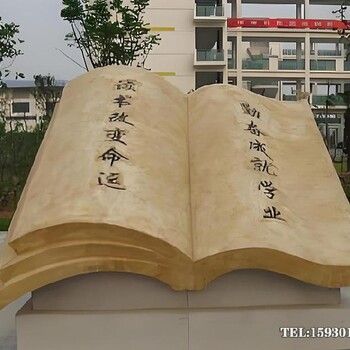 读书改变命运
勤奋成就学业
TEL:159301